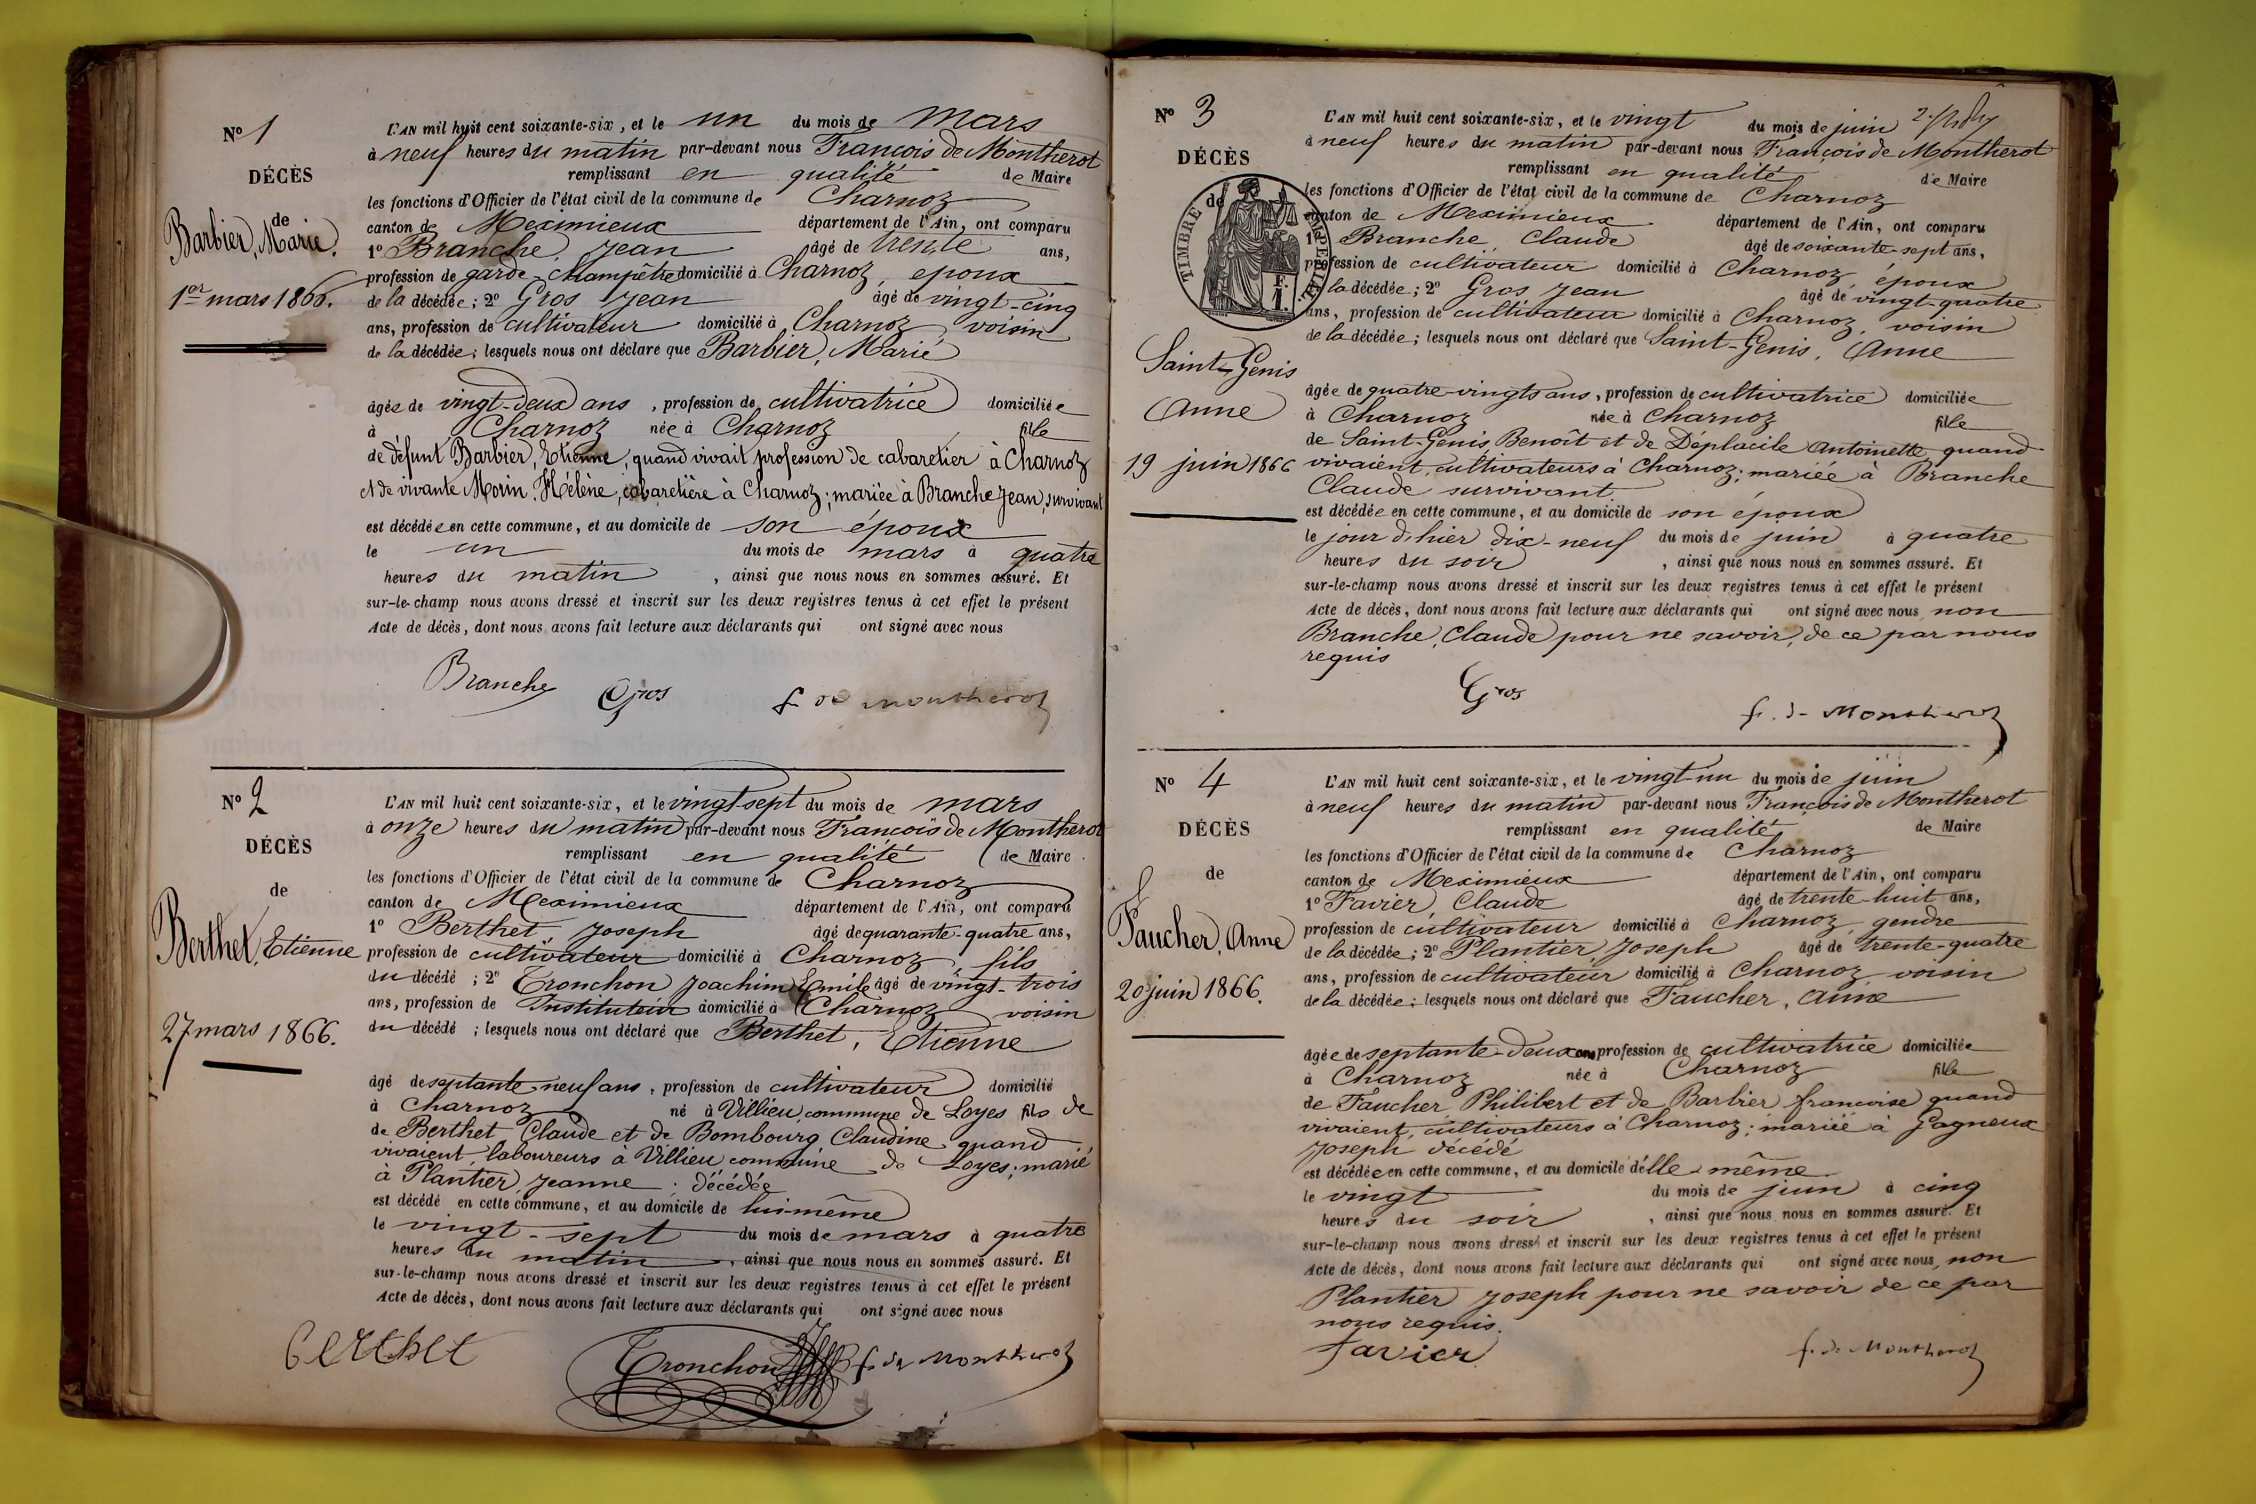 N° 1
DÉCÈS
de
Barbier, Marie.
1er mars 1866.
L'AN mil huit cent soixante-six, et le un du mois de mars
à neuf heures du matin par-devant nous François de Montherot
remplissant en qualité de Maire
les fonctions d'Officier de l'état civil de la commune de Charnoz
canton de Meximieux département de l'Ain, ont comparu
1° Branche, Jean âgé de trente ans,
profession de garde-champêtre domicilié à Charnoz, époux
de la décédée; 2° Gros Jean âgé de vingt-cinq
ans, profession de cultivateur domicilié à Charnoz, voisin
de la décédée; lesquels nous ont déclaré que Barbier, Marie
âgée de vingt-deux ans, profession de cultivatrice domiciliée
à Charnoz née à Charnoz fille
de défunt Barbier, Etienne, quand vivait profession de cabaretier à Charnoz
et de vivante Morin, Hélène, cabaretière à Charnoz; mariée à Branche Jean, survivant
est décédée en cette commune, et au domicile de son époux
le un du mois de mars à quatre
heures du matin, ainsi que nous nous en sommes assuré. Et
sur-le-champ nous avons dressé et inscrit sur les deux registres tenus à cet effet le présent
Acte de décès, dont nous avons fait lecture aux déclarants qui ont signé avec nous
Branche Gros f. de Montherot
N° 2
DÉCÈS
de
Berthet, Etienne
27 mars 1866.
L'AN mil huit cent soixante-six, et le vingt-sept du mois de mars
à onze heures du matin par-devant nous François de Montherot
remplissant en qualité de Maire
les fonctions d'Officier de l'état civil de la commune de Charnoz
canton de Meximieux département de l'Ain, ont comparu
1° Berthet, Joseph âgé de quarante-quatre ans,
profession de cultivateur domicilié à Charnoz, fils
du décédé; 2° Tronchon Joachim Emile âgé de vingt-trois
ans, profession de Instituteur domicilié à Charnoz voisin
du décédé; lesquels nous ont déclaré que Berthet, Etienne
âgé de septante-neuf ans, profession de cultivateur domicilié
à Charnoz né à Villieu commune de Loyes fils de
de Berthet Claude et de Bombourg Claudine quand
vivaient laboureurs à Villieu commune de Loyes; marié
à Plantier, Jeanne. décédée
est décédé en cette commune, et au domicile de lui-même
le vingt-sept du mois de mars à quatre
heures du matin, ainsi que nous nous en sommes assuré. Et
sur-le-champ nous avons dressé et inscrit sur les deux registres tenus à cet effet le présent
Acte de décès, dont nous avons fait lecture aux déclarants qui ont signé avec nous
berthet Tronchon f. de Montherot
N° 3
DÉCÈS
de
TIMBRE IMPÉRIAL
Saint-Genis
Anne
19 juin 1866
L'AN mil huit cent soixante-six, et le vingt du mois de juin
à neuf heures du matin par-devant nous François de Montherot
remplissant en qualité de Maire
les fonctions d'Officier de l'état civil de la commune de Charnoz
canton de Meximieux département de l'Ain, ont comparu
1° Branche, Claude âgé de soixante-sept ans,
profession de cultivateur domicilié à Charnoz, époux
de la décédée; 2° Gros Jean âgé de vingt-quatre
ans, profession de cultivateur domicilié à Charnoz, voisin
de la décédée; lesquels nous ont déclaré que Saint-Genis, Anne
âgée de quatre-vingts ans, profession de cultivatrice domiciliée
à Charnoz née à Charnoz fille
de Saint-Genis, Benoît et de Déplacile Antoinette quand
vivaient, cultivateurs à Charnoz; mariée à Branche
Claude survivant
est décédée en cette commune, et au domicile de son époux
le jour d'hier dix-neuf du mois de juin à quatre
heures du soir, ainsi que nous nous en sommes assuré. Et
sur-le-champ nous avons dressé et inscrit sur les deux registres tenus à cet effet le présent
Acte de décès, dont nous avons fait lecture aux déclarants qui ont signé avec nous, non
Branche, Claude pour ne savoir, de ce par nous
requis
Gros
f. de Montherot
N° 4
DÉCÈS
de
Faucher, Anne
20 juin 1866.
L'AN mil huit cent soixante-six, et le vingt-un du mois de juin
à neuf heures du matin par-devant nous François de Montherot
remplissant en qualité de Maire
les fonctions d'Officier de l'état civil de la commune de Charnoz
canton de Meximieux département de l'Ain, ont comparu
1° Favier, Claude âgé de trente huit ans,
profession de cultivateur domicilié à Charnoz, gendre
de la décédée; 2° Plantier, Joseph âgé de trente-quatre
ans, profession de cultivateur domicilié à Charnoz, voisin
de la décédée; lesquels nous ont déclaré que Faucher, Anne
âgée de septante-deux ans profession de cultivatrice domiciliée
à Charnoz née à Charnoz fille
de Faucher Philibert et de Barbier françoise quand
vivaient, cultivateurs à Charnoz; mariée à Gagneux
Joseph décédé
est décédée en cette commune, et au domicile d'elle-même
le vingt du mois de juin à cinq
heures du soir, ainsi que nous nous en sommes assuré. Et
sur-le-champ nous avons dressé et inscrit sur les deux registres tenus à cet effet le présent
Acte de décès, dont nous avons fait lecture aux déclarants qui ont signé avec nous, non
Plantier Joseph pour ne savoir de ce par
nous requis.
favier f. de Montherot